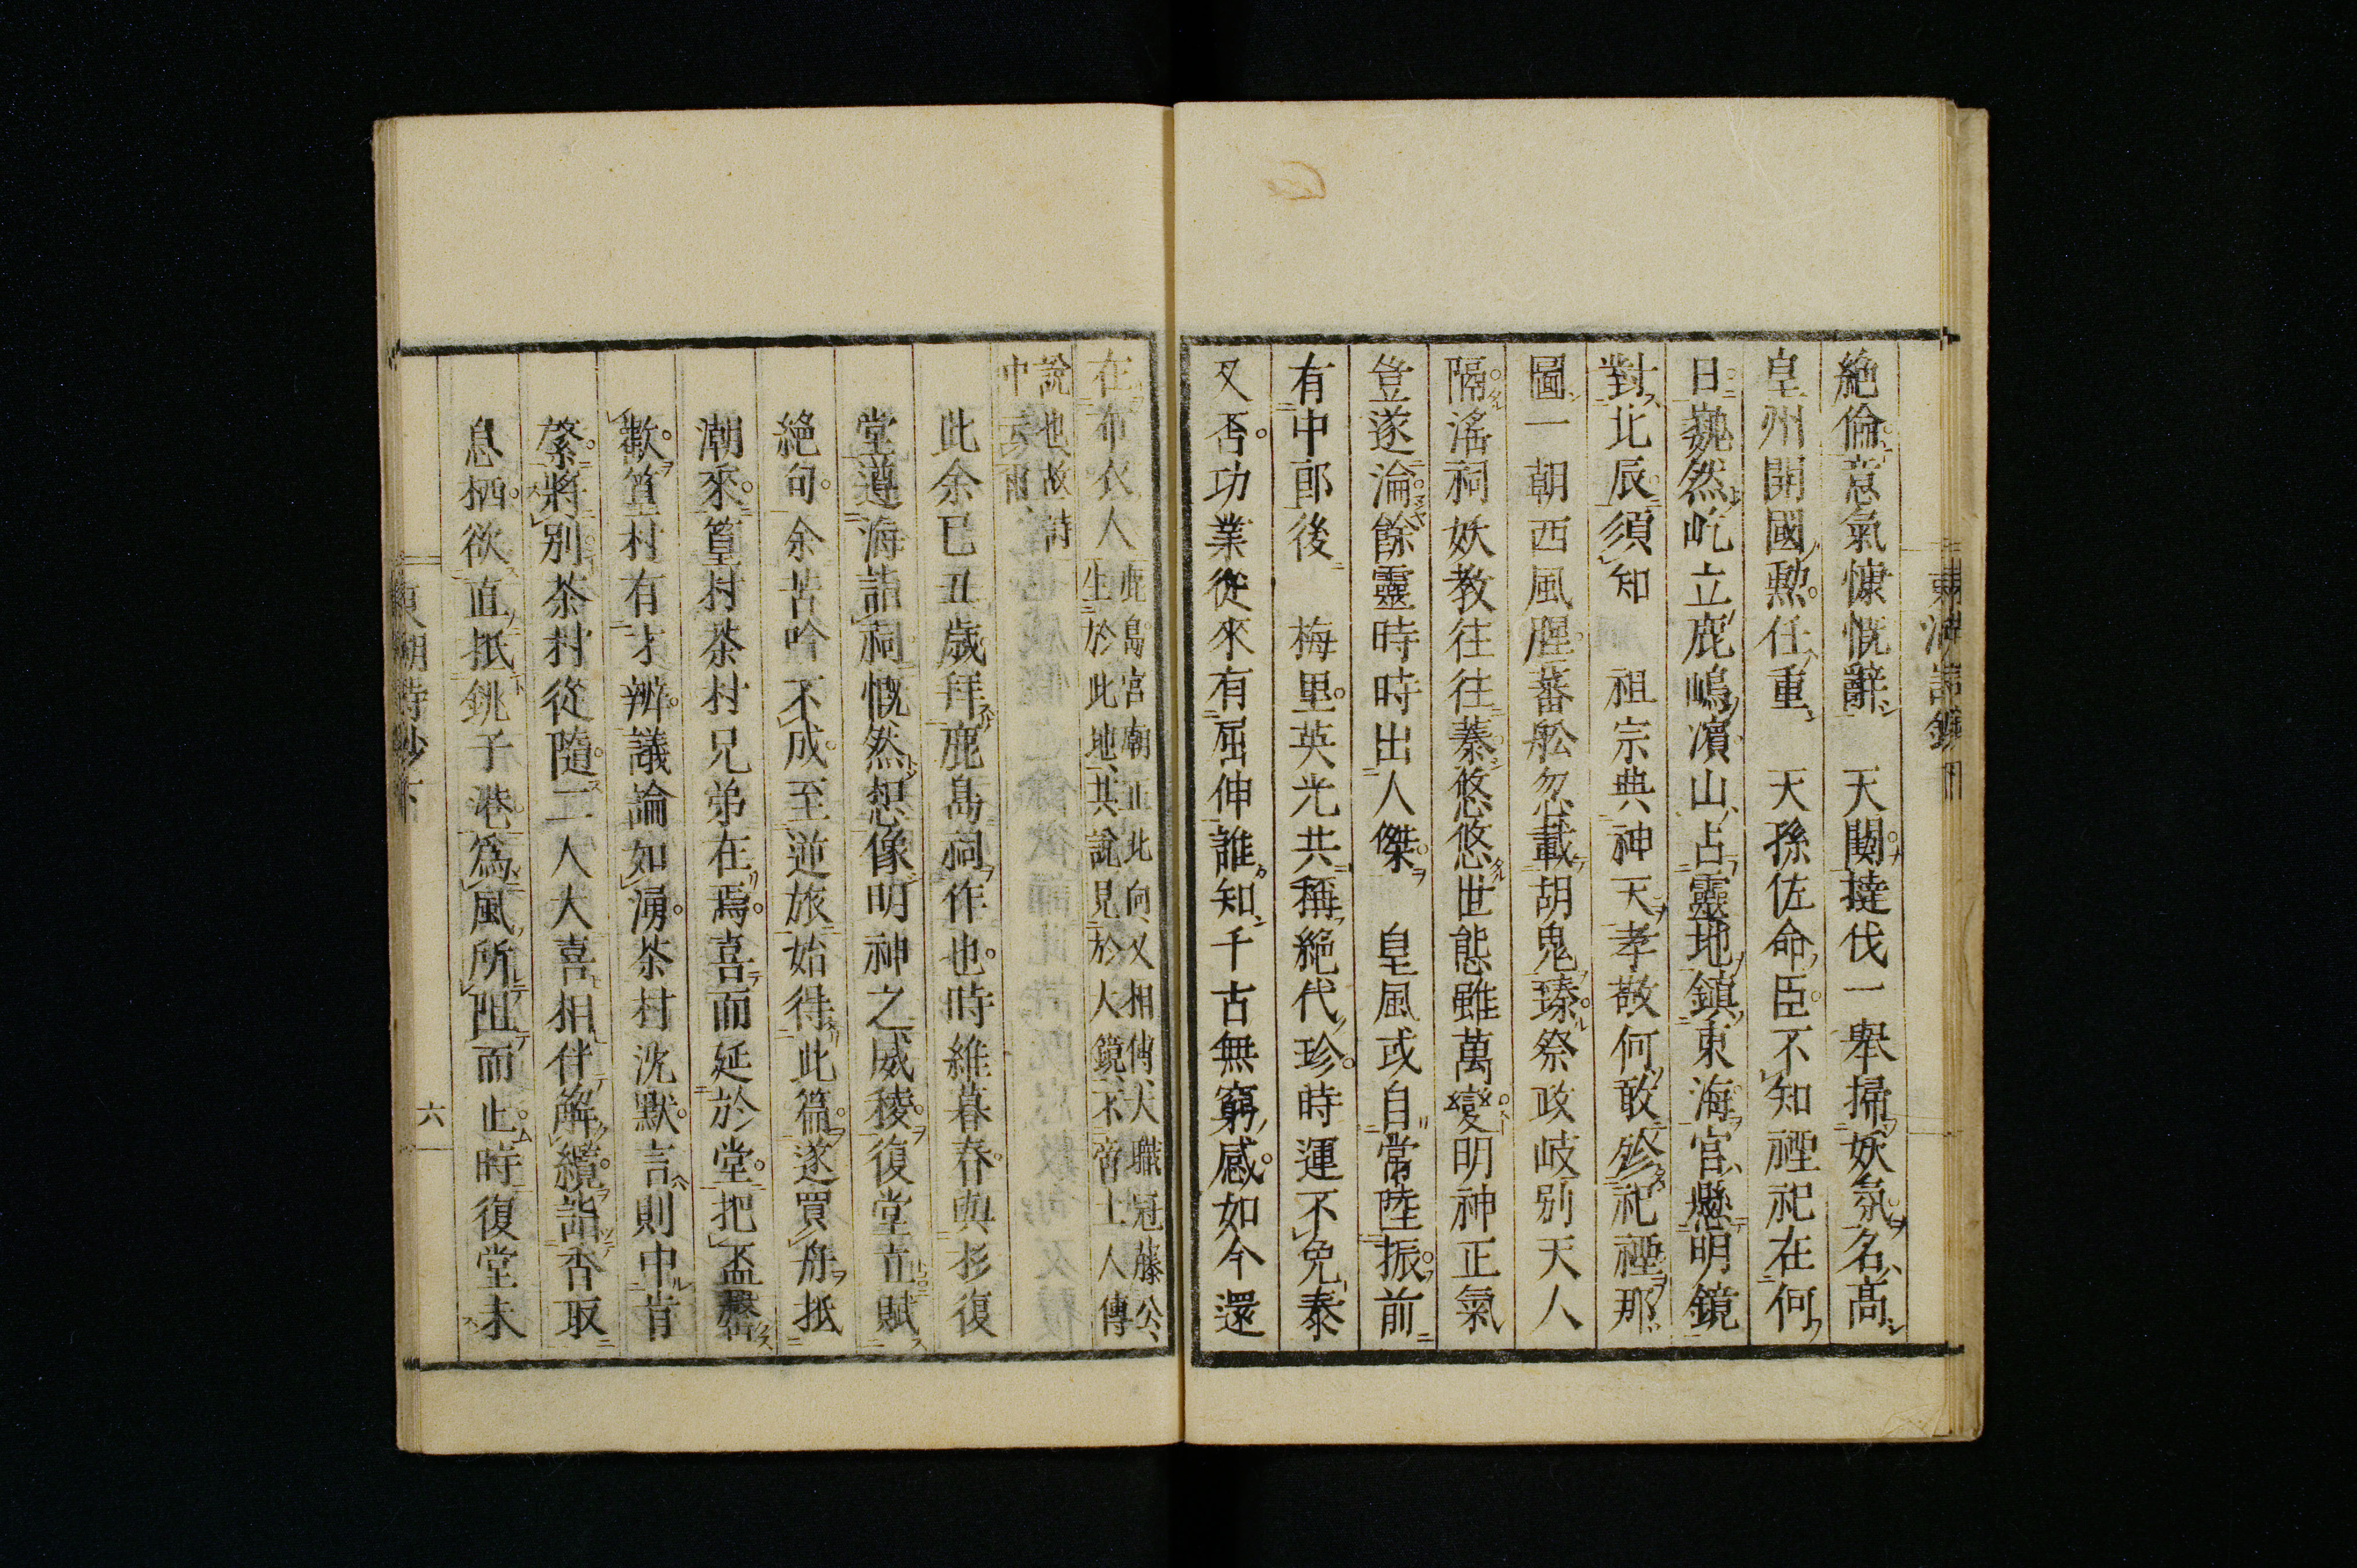 絶倫意氣慷慨辭　天閽撻伐一舉掃妖氛名高
皇州開國勲任重　天孫佐命臣不知禋祀在何
日巍然屹立鹿嶋濱山占靈地鎮東海宮懸明鏡
對北辰須知　祖宗典神天孝敬何敢殄祀禋那
圖一朝西風腥蕃舩忽載胡鬼臻祭政岐別天人
隔滛祠妖教往往蓁悠悠世態雖萬變明神正氣
豈遂淪餘靈時時出人傑　皇風或自常陸振前
有中郎後　梅里英光共稱絶代珍時運不免泰
又否功業從來有屈伸誰知千古無窮感如今還
在布衣人
此島宮廟正北向又相傳大職冠藤公、
生於此地、其說見於大鏡、不啻土人傳
說也故詩
中云爾
此余已丑歲拜鹿島祠作也時維暮春與杉復
堂遵海詣祠慨然想像明神之威稜復堂立賦
絶句余苦吟不成至逆旅始得此篇遂買舟抵
潮來篁村茶村兄弟在焉喜而延於堂把盃罄
歡篁村有才辨議論如湧茶村沈默言則中肯
綮將別茶村從隨二人大喜相伴解纜詣香取
息栖欲直抵銚子港爲風所阻而止時復堂未
東湖詩鈔下
六